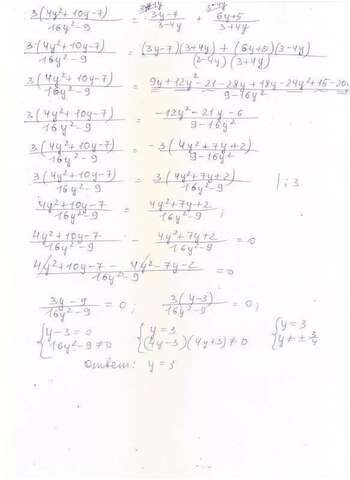 3+4y 3-4y
3(4y²+10y-7)/16y²-9 = 3y-7/3-4y + 6y+5/3+4y
3(4y²+10y-7)/16y²-9 = (3y-7)(3+4y) + (6y+5)(3-4y)/(3-4y)(3+4y)
3(4y²+10y-7)/16y²-9 = 9y+12y²-21-28y+18y-24y²+15-20y/9-16y²
3(4y²+10y-7)/16y²-9 = -12y²-21y-6/9-16y²
3(4y²+10y-7)/16y²-9 = -3(4y²+7y+2)/9-16y²
3(4y²+10y-7)/16y²-9 = 3(4y²+7y+2)/16y²-9 | :3
4y²+10y-7/16y²-9 = 4y²+7y+2/16y²-9 ;
4y²+10y-7/16y²-9 - 4y²+7y+2/16y²-9 = 0
4y²+10y-7-4y²-7y-2/16y²-9 = 0
3y-9/16y²-9 = 0 ; 3(y-3)/16y²-9 = 0 ;
{y-3=0 {y=3 {y=3
16y²-9≠0 (4y-3)(4y+3)≠0 y≠±3/4
Ответ: y=3